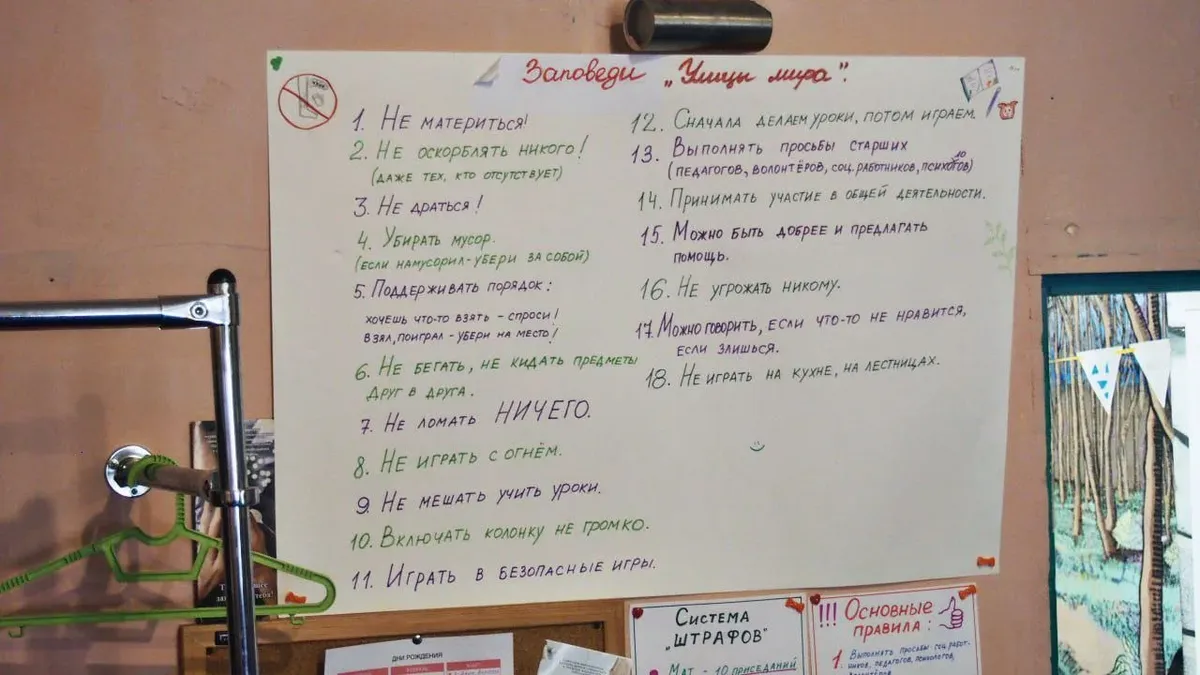 Заповеди „Улицы мира“.
1. Не материться!
2. Не оскорблять никого!
(даже тех, кто отсутствует)
3. Не драться!
4. Убирать мусор.
(если намусорил - убери за собой)
5. Поддерживать порядок:
хочешь что-то взять - спроси!
взял, поиграл - убери на место!
6. Не бегать, не кидать предметы
друг в друга.
7. Не ломать НИЧЕГО.
8. Не играть с огнём.
9. Не мешать учить уроки.
10. Включать колонку не громко.
11. Играть в безопасные игры.
12. Сначала делаем уроки, потом играем.
13. Выполнять просьбы старших
(педагогов, волонтёров, соц. работников, психологов)
14. Принимать участие в общей деятельности.
15. Можно быть добрее и предлагать
помощь.
16. Не угрожать никому.
17. Можно говорить, если что-то не нравится,
если злишься.
18. Не играть на кухне, на лестницах.
ДНИ РОЖДЕНИЯ
Система
„ШТРАФОВ"
Мат - 10 приседаний
!!! Основные
правила:
1. Выполнять просьбы соц. работ-
ников, педагогов, психологов,
волонтёров